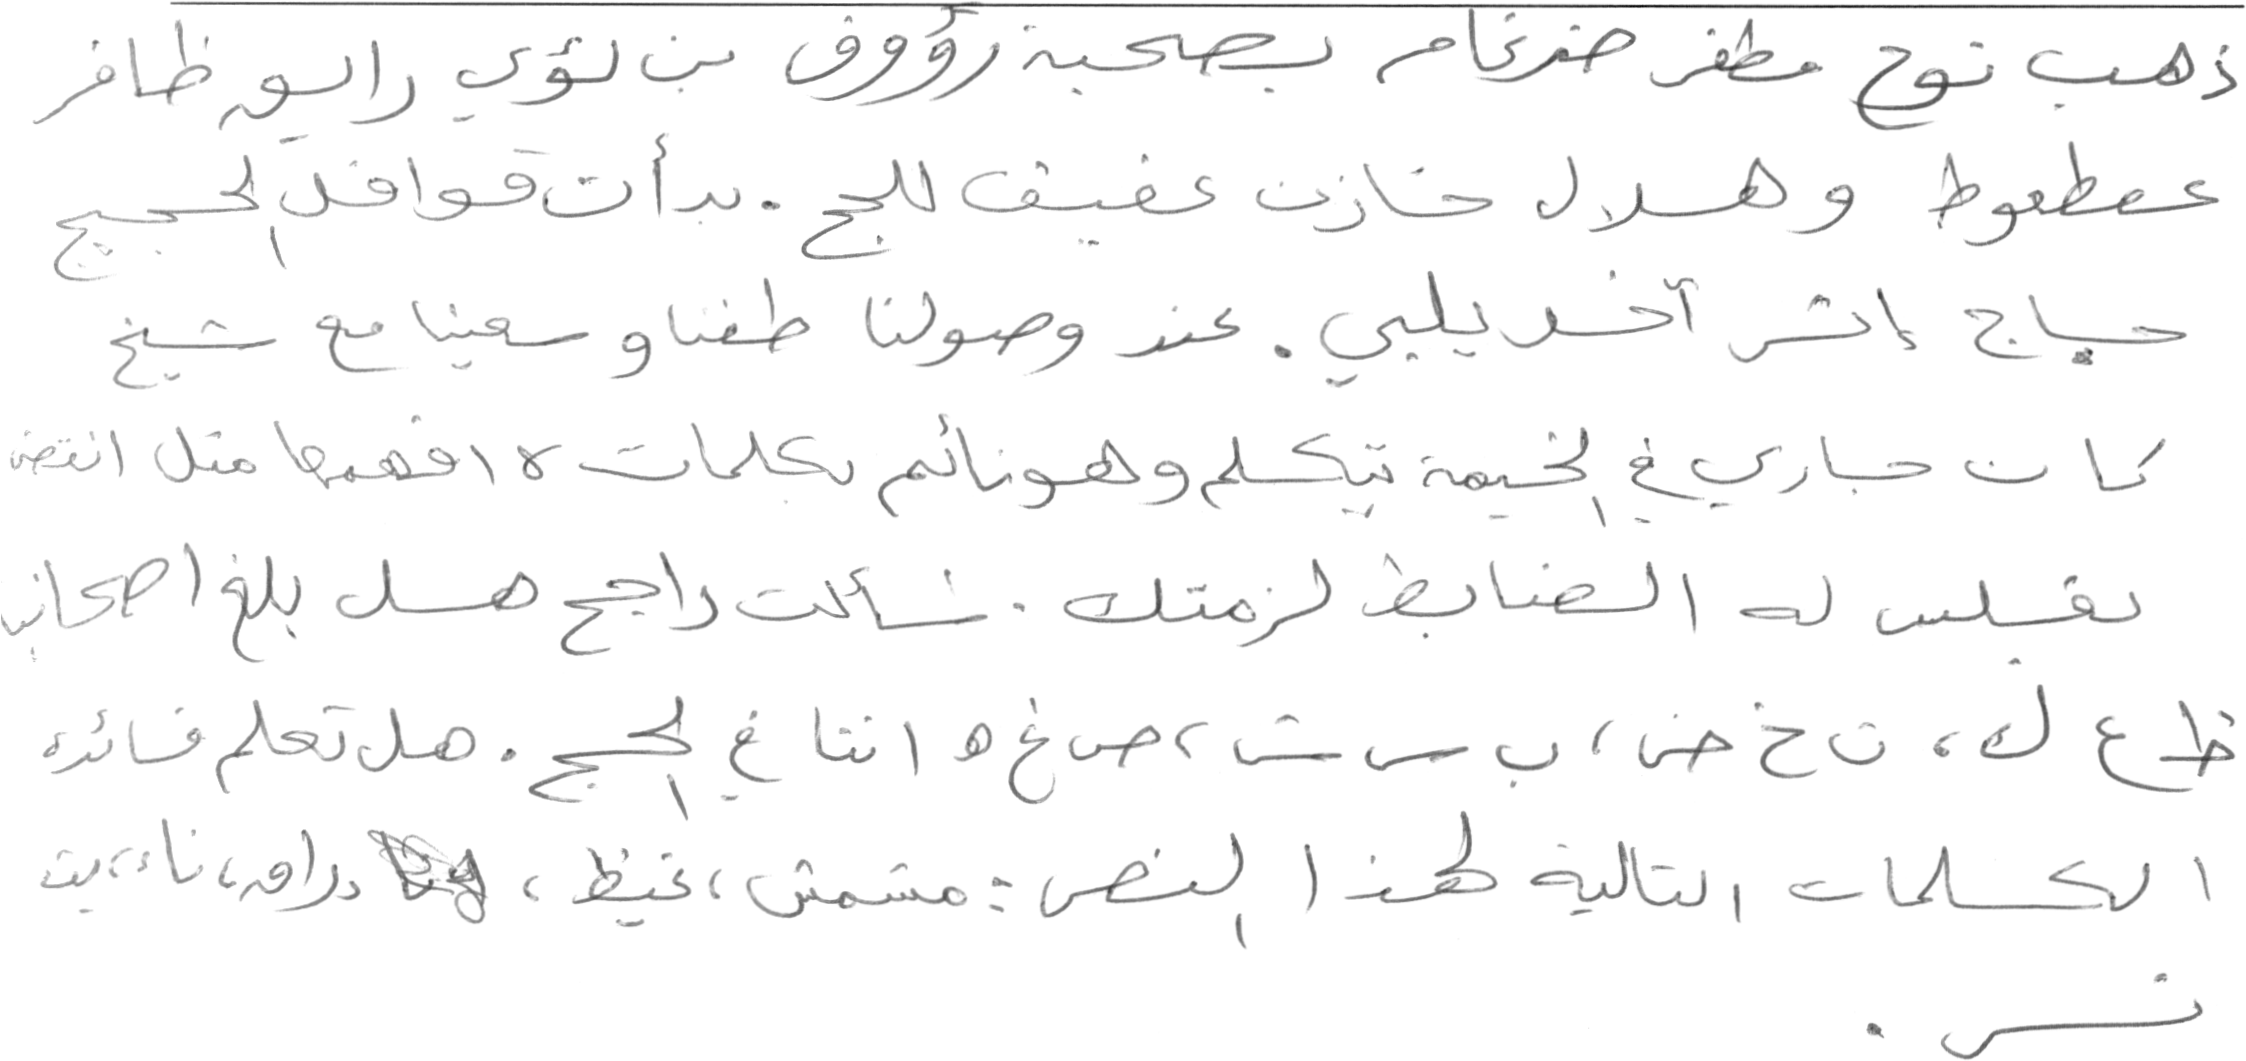 ذهب نوح مظفر ضرغام بصحبة رؤوف بن لؤي راجي ظافر
عطعوط وهلال خازن عفيف للحج . بدأت قوافل الحجيج
حجاج إثر آخر يلبي . عند وصولنا طفنا وسعينا مع شيخ
كان جاري في الخيمة يتكلم وهو نائم بكلمات لا افهمها مثل
له الضابط لزمتك . سألت راجح هل بلغ
ظ ع ك ، ن خ ض ، ب س ش ، ص غ ه اننا في الحج . هل تعلم فائده
الكلمات التالية لهذا النص : مشمش ، غيظ ، ناء ، بت